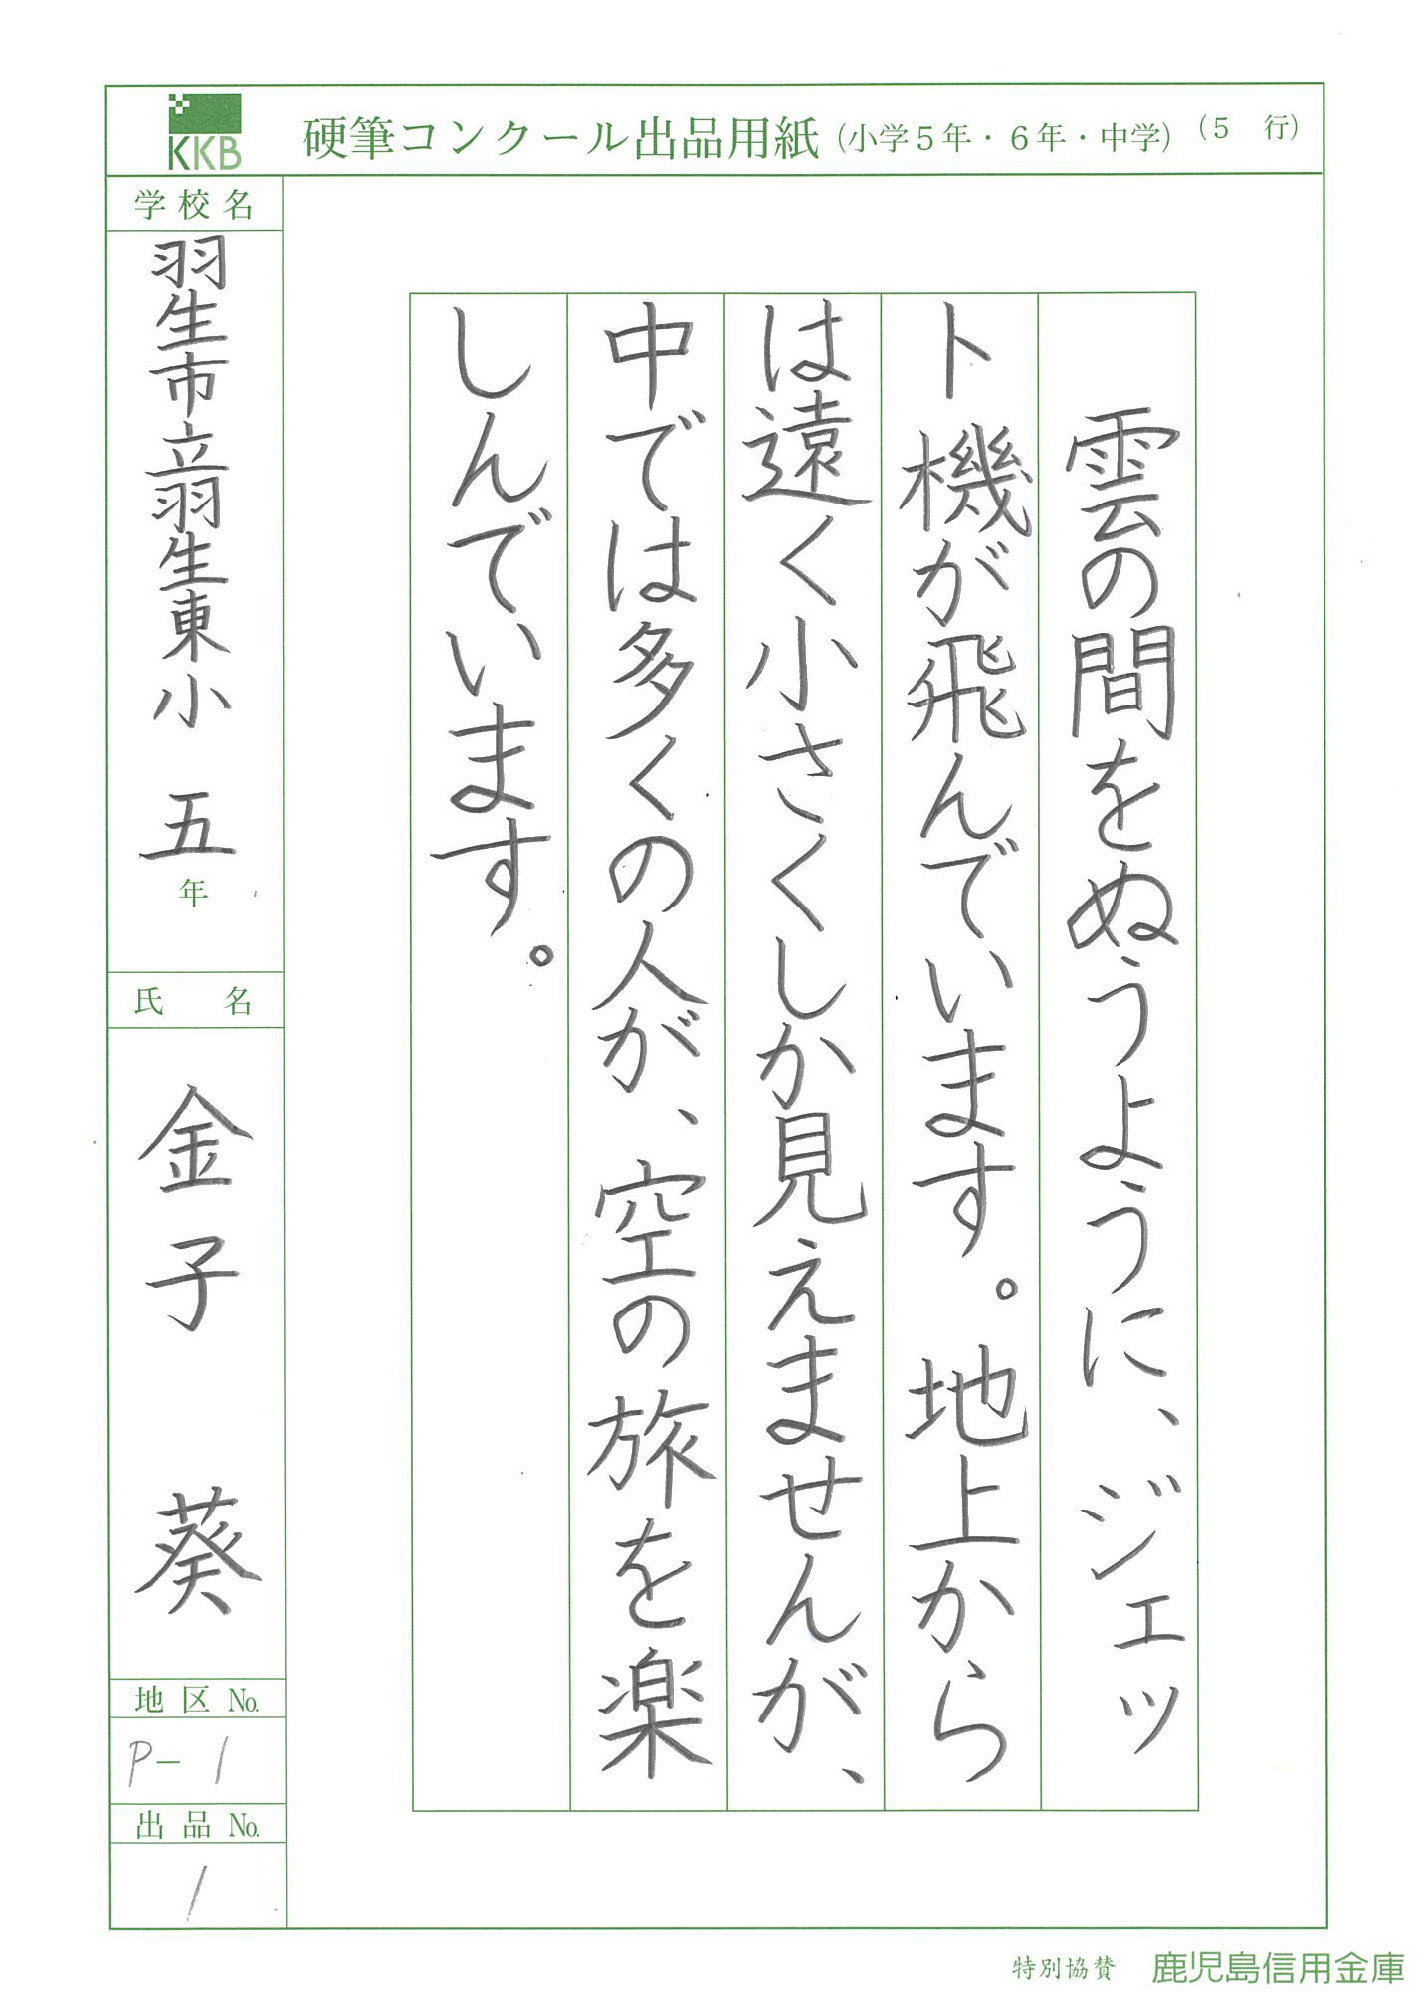 KKB
硬筆コンクール出品用紙(小学5年・6年・中学)(5 行)
雲の間をぬうように、ジェッ
ト機が飛んでいます。地上から
は遠く小さくしか見えませんが、
中では多くの人が、空の旅を楽
しんでいます。
学校名
羽生市立羽生東小 五年
氏名
金子 葵
地区No.
P-1
出品No.
1
特別協賛 鹿児島信用金庫